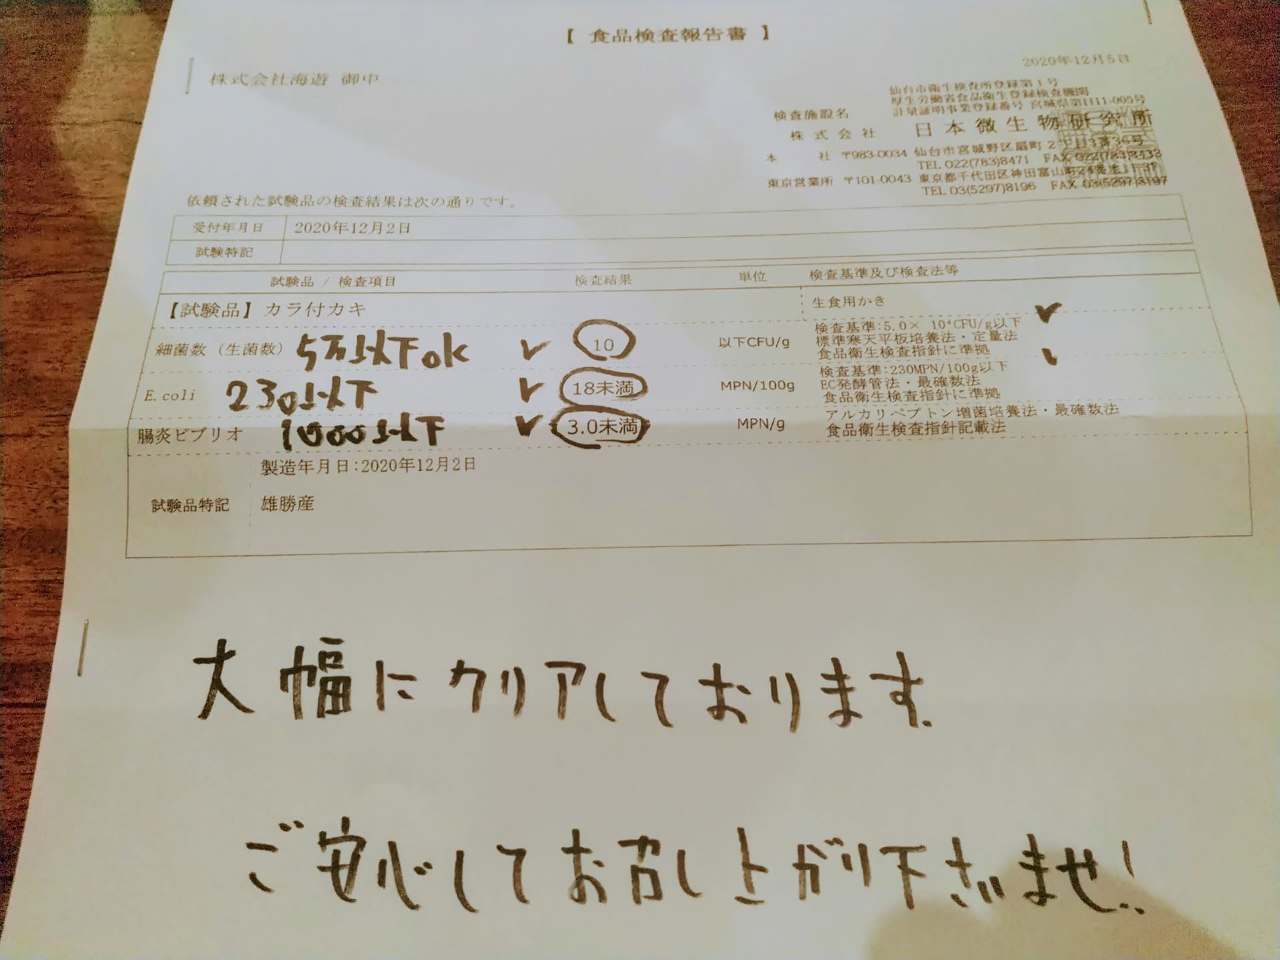 【 食品検査報告書 】
2020年12月5日
株式会社海遊 御中
仙台市衛生検査所登録第1号
厚生労働省食品衛生登録検査機関
検査施設名 計量証明事業登録番号 宮城県第1111-005号
株式会社 日本微生物研究所
本 社 〒983-0034 仙台市宮城野区扇町2丁目3番36号
TEL 022(783)8471 FAX 022(783)8433
東京営業所 〒101-0043 東京都千代田区神田富山町24
TEL 03(5297)8196 FAX 03(5297)8197
依頼された試験品の検査結果は次の通りです。
受付年月日 2020年12月2日
試験特記
試験品 / 検査項目 検査結果 単位 検査基準及び検査法等
【試験品】カラ付カキ 生食用かき
細菌数(生菌数) 5万以下OK ✓ 10 以下CFU/g 検査基準:5.0× 10⁴CFU/g以下 ✓
標準寒天平板培養法・定量法
食品衛生検査指針に準拠
E.coli 230以下 ✓ 18未満 MPN/100g 検査基準:230MPN/100g以下 ✓
EC発酵管法・最確数法
食品衛生検査指針に準拠
腸炎ビブリオ 1000以下 ✓ 3.0未満 MPN/g アルカリペプトン増菌培養法・最確数法
食品衛生検査指針記載法
製造年月日:2020年12月2日
試験品特記 雄勝産
大幅にクリアしております.
ご安心してお召し上がり下さいませ!!